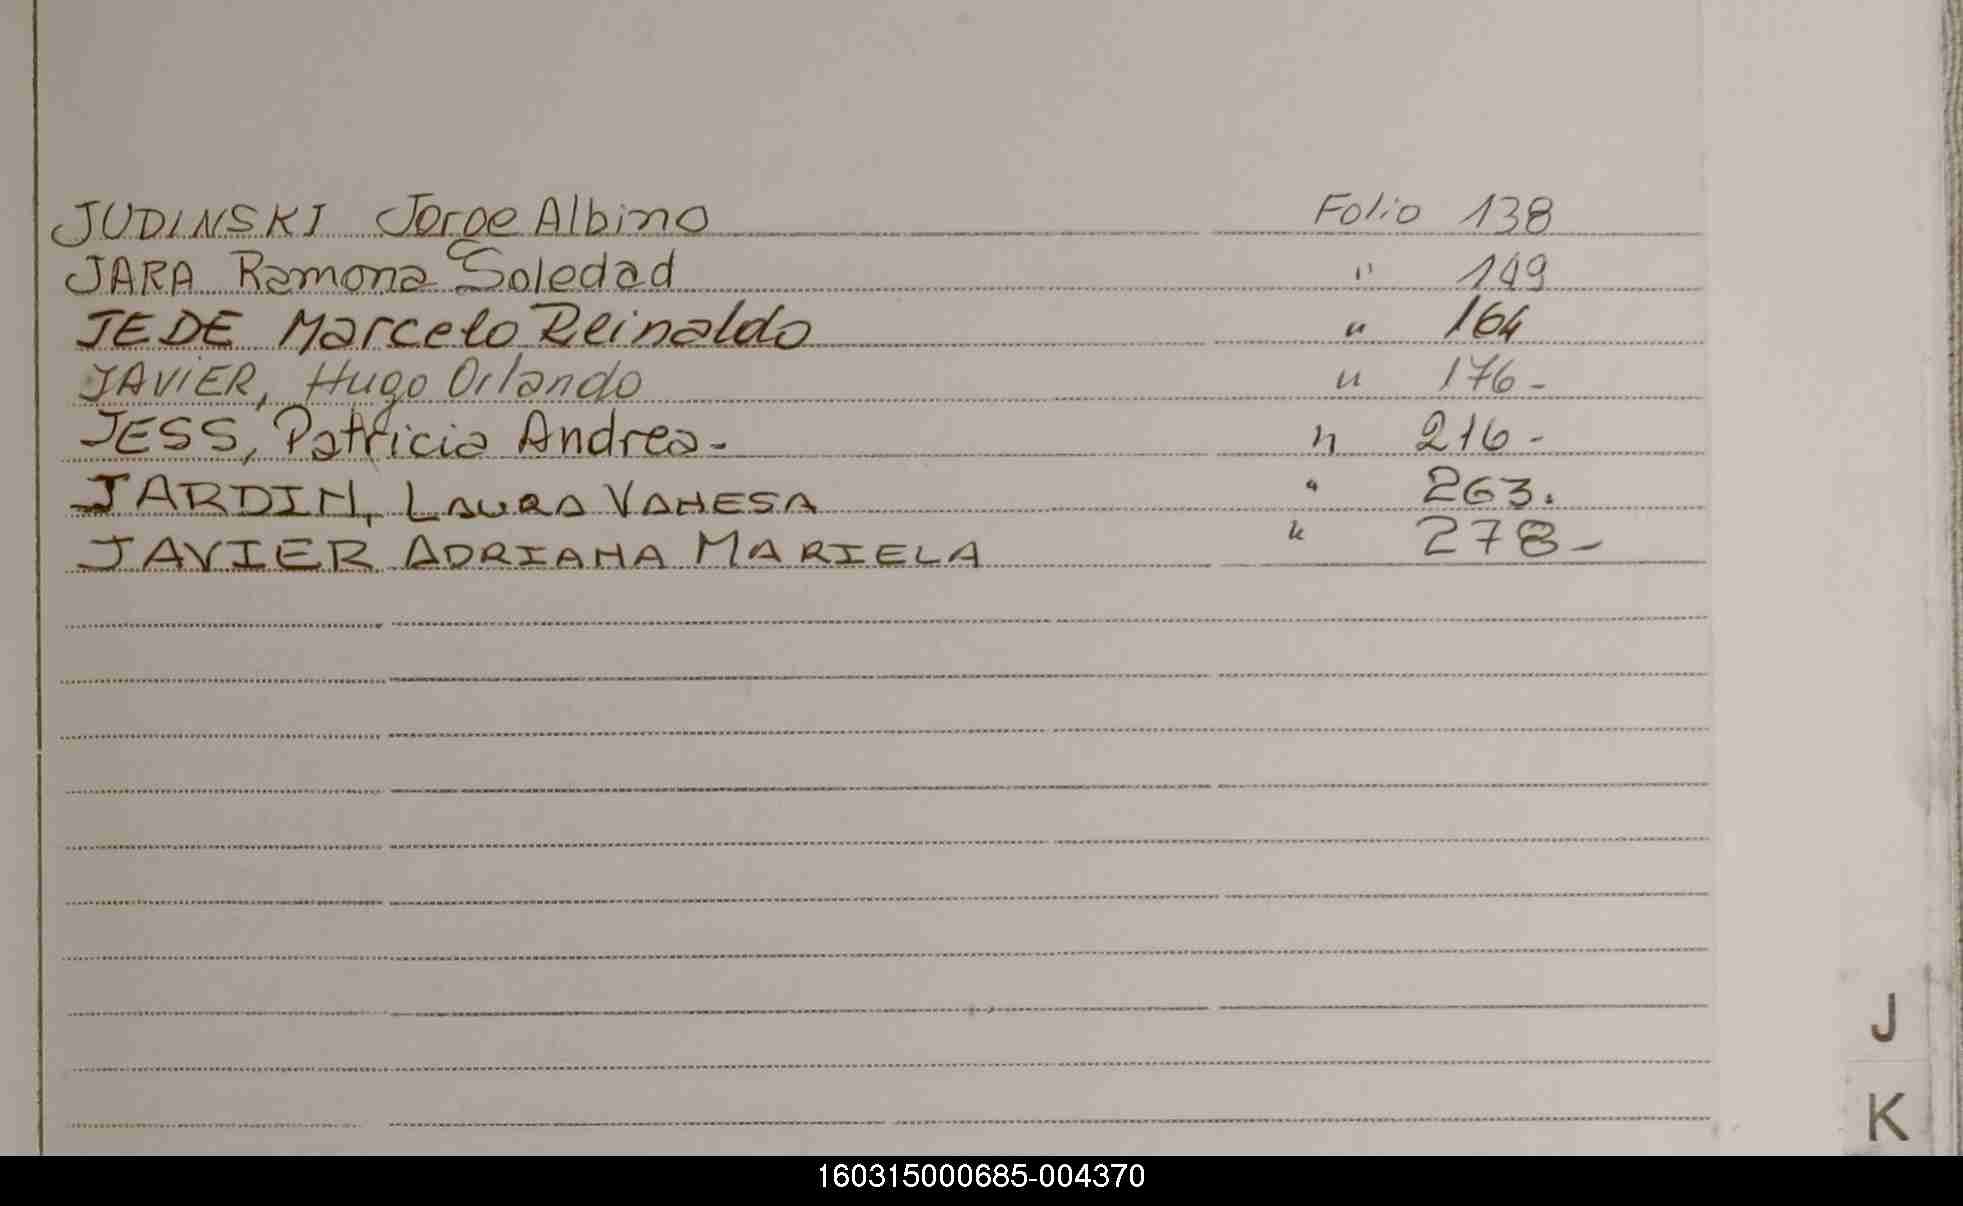 JUDINSKI Jorge Albino Folio 138
JARA Ramona Soledad " 149
JEDE Marcelo Reinaldo " 164
JAVIER, Hugo Orlando " 176-
JESS, Patricia Andrea- " 216-
JARDIN, LAURA VANESA " 263.
JAVIER ADRIANA MARIELA " 278-
J
K
160315000685-004370